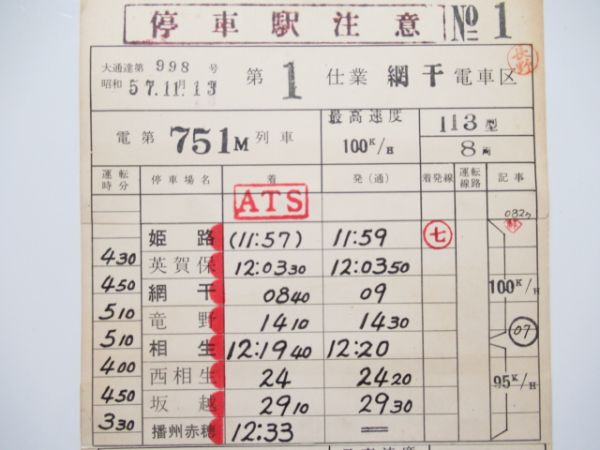 停車駅注意 No 1
大通達第 998 号
昭和 57.11月13
第 1 仕業 網干電車区
長野
電第 751M 列車
最高速度
100K/H
113型
8両
運転時分 停車場名 着 発(通) 着発線 運転線路 記事
ATS
姫路 (11:57) 11:59 七
430
英賀保 12:03 30 12:03 50
450
網干 08 40 09 100K/H
510
竜野 14 10 14 30 07
510
相生 12:19 40 12:20
400
西相生 24 24 20 95K/H
450
坂越 29 10 29 30
330
播州赤穂 12:33 =